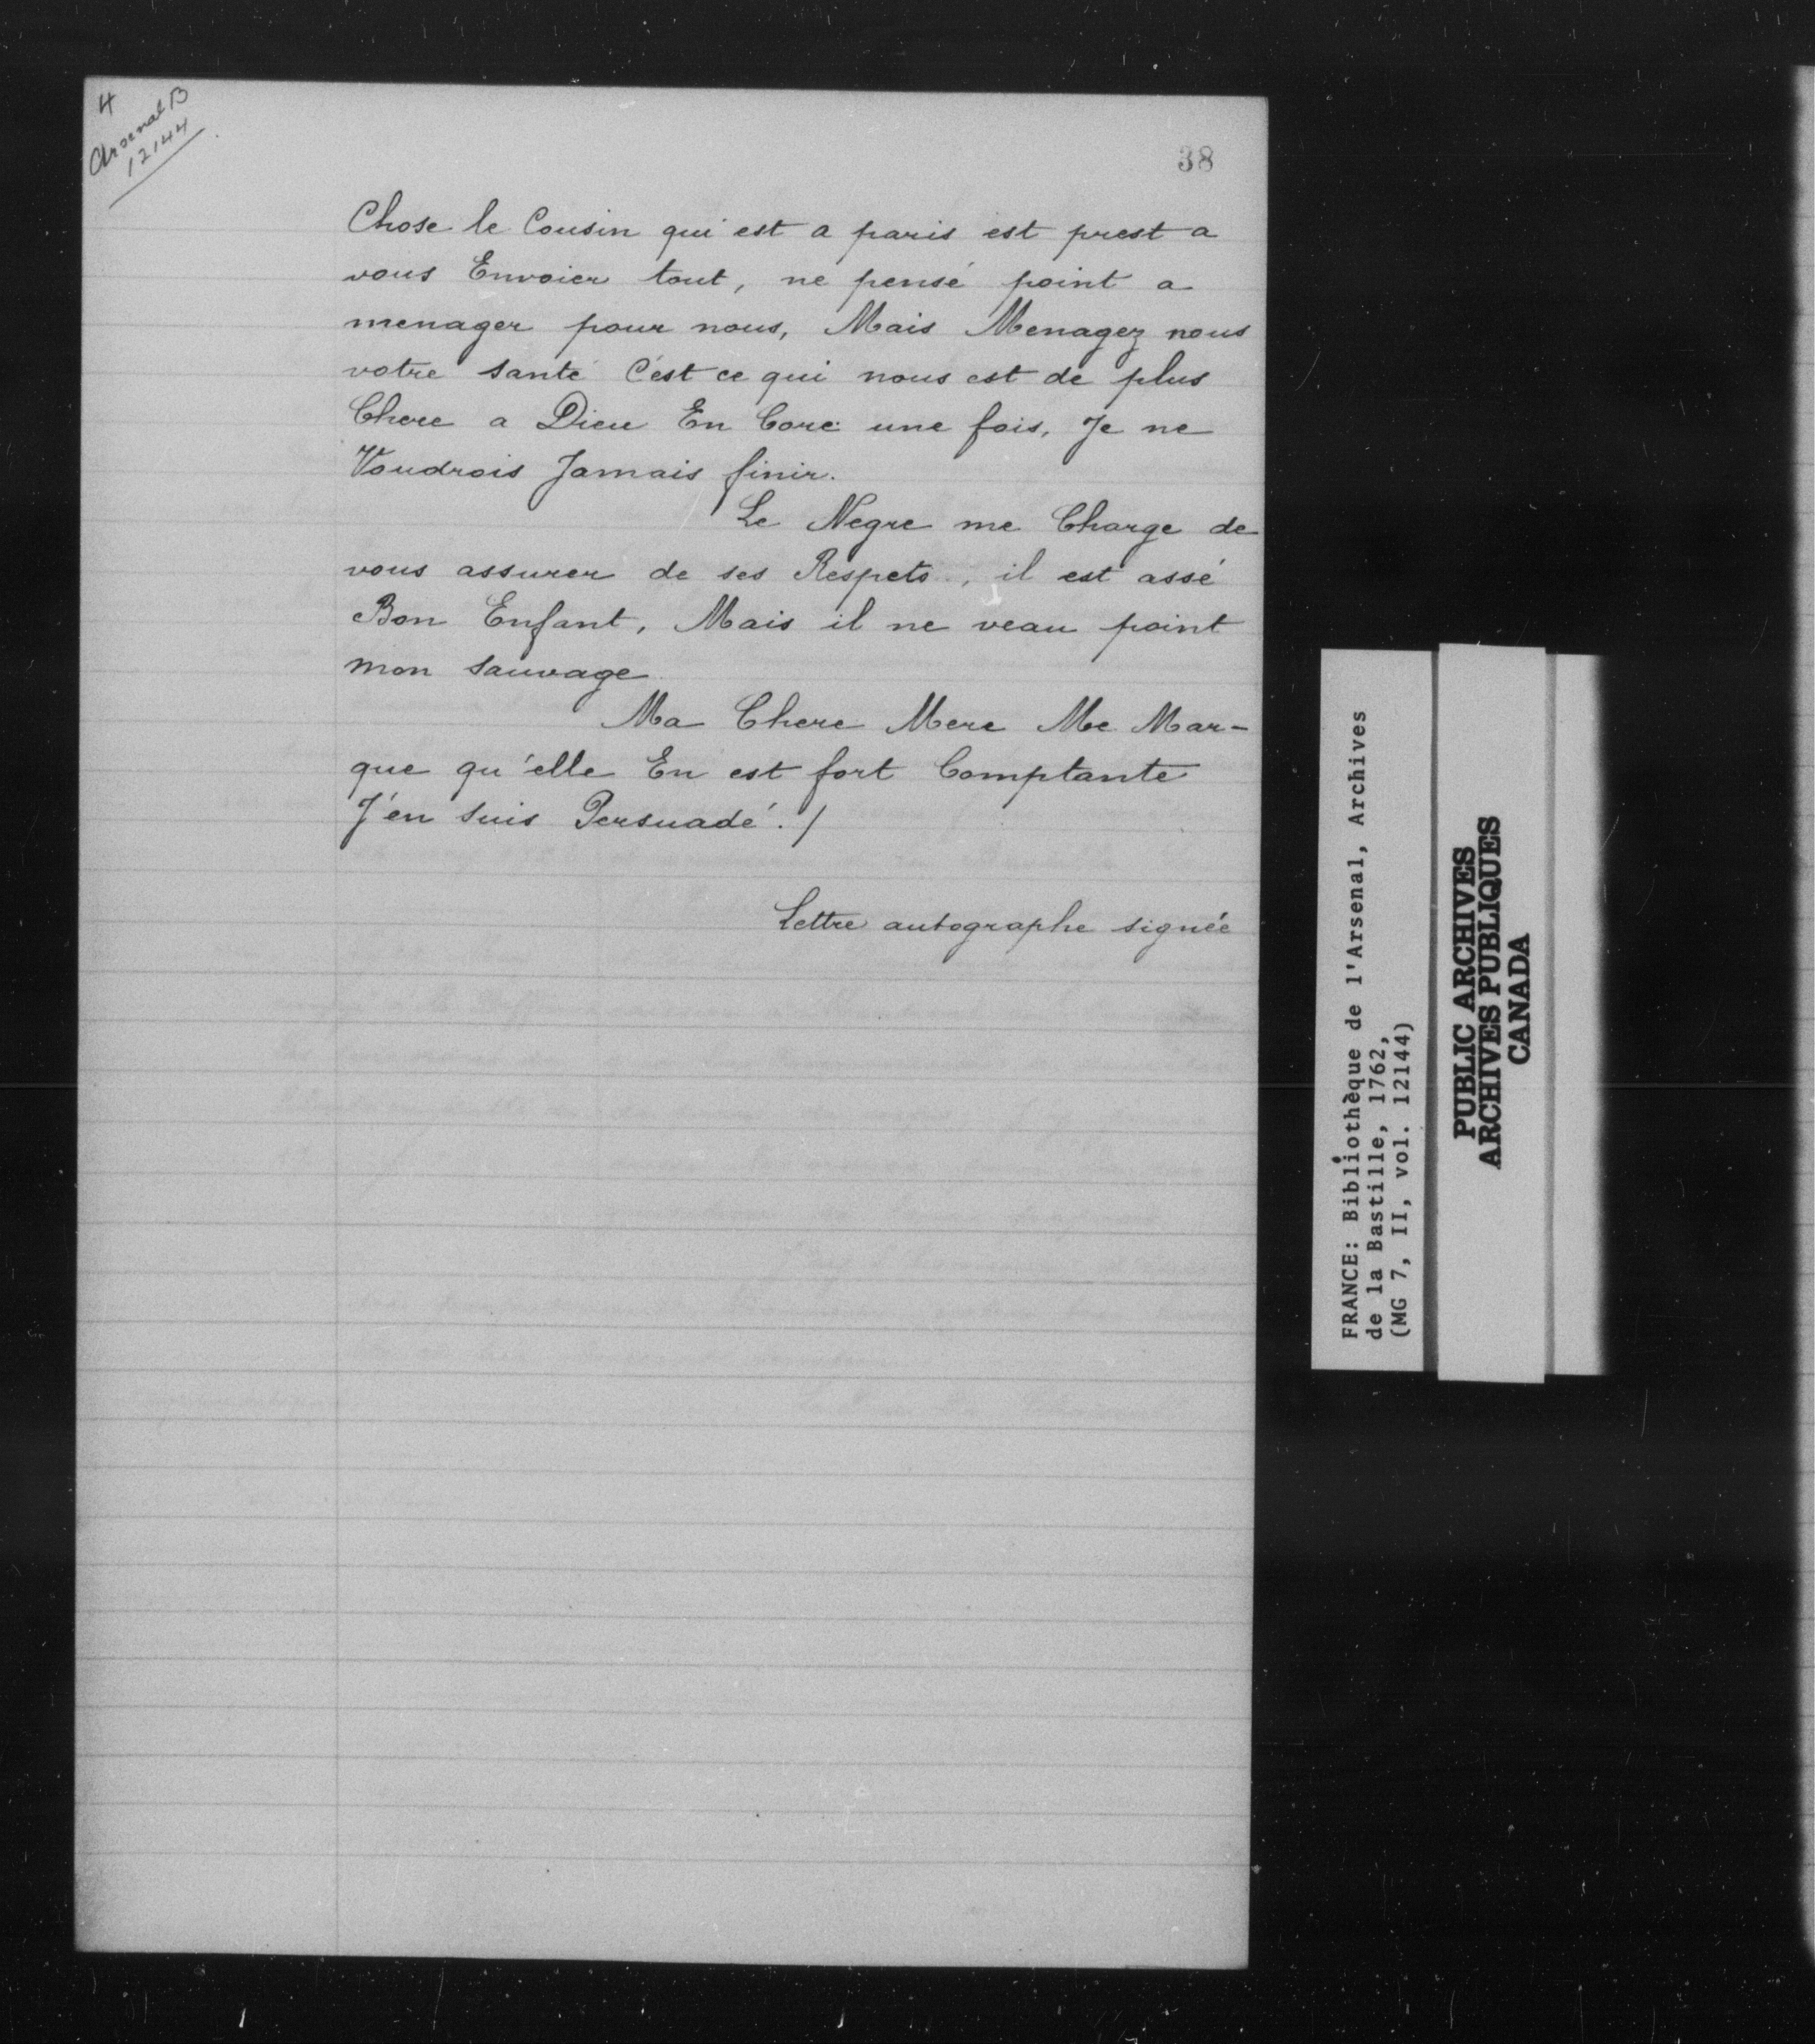 4
Arsenal B
12144
38
Chose le Cousin qui est a paris est prest a
vous Envoier tout, ne pensé point a
menager pour nous, Mais Menagez nous
votre santé C'est ce qui nous est de plus
Chere a Dieu En Core une fois, Je ne
Voudrois Jamais finir.
Le Negre me Charge de
vous assurer de ses Respets, il est assé
Bon Enfant, Mais il ne veau point
mon sauvage
Ma Chere Mere Me Mar-
que qu'elle En est fort Comptante
J'en suis Persuadé ./
Lettre autographe signée
FRANCE: Bibliothèque de l'Arsenal, Archives
de la Bastille, 1762,
(MG 7, II, vol. 12144)
PUBLIC ARCHIVES
ARCHIVES PUBLIQUES
CANADA